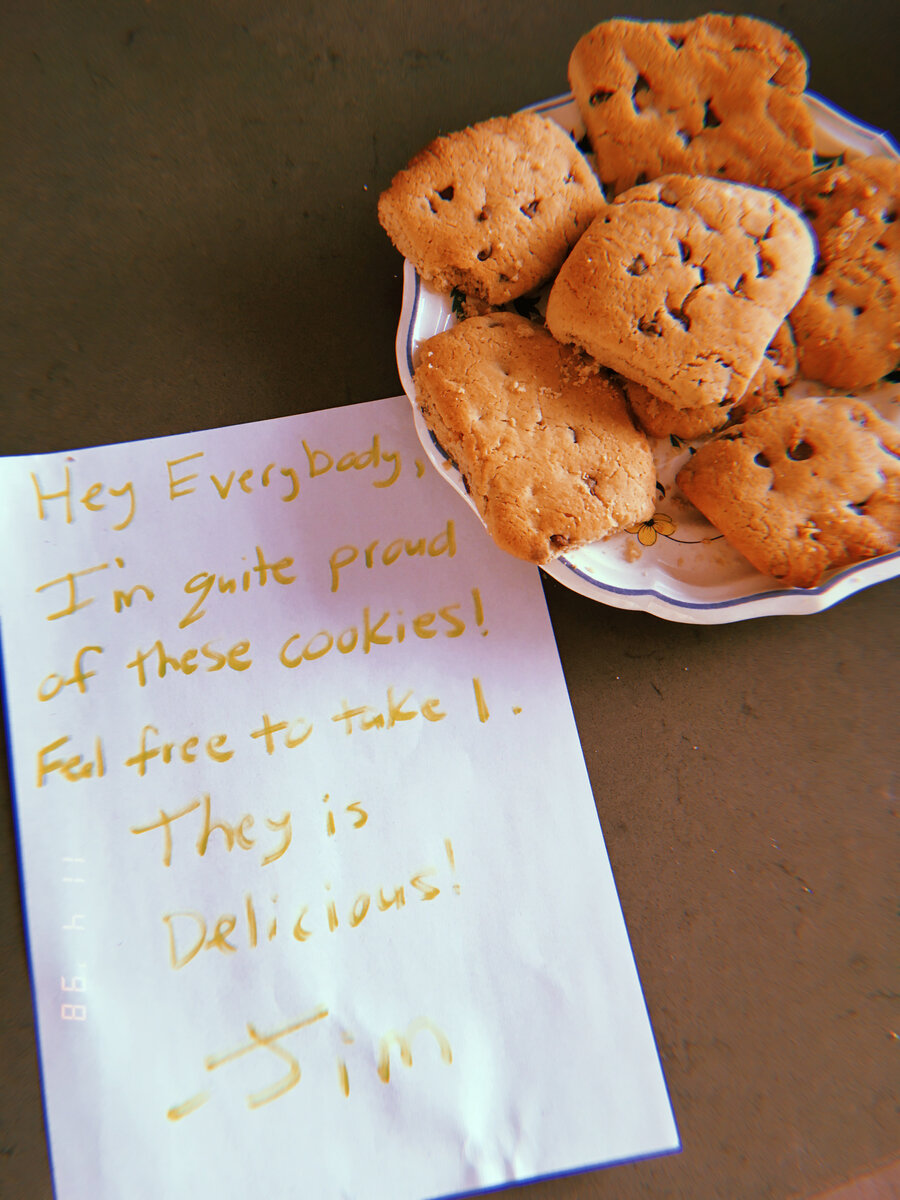 Hey Everybody,
I'm quite proud
of these cookies!
Feel free to take 1.
They is
Delicious!
-Jim
11 4 '98